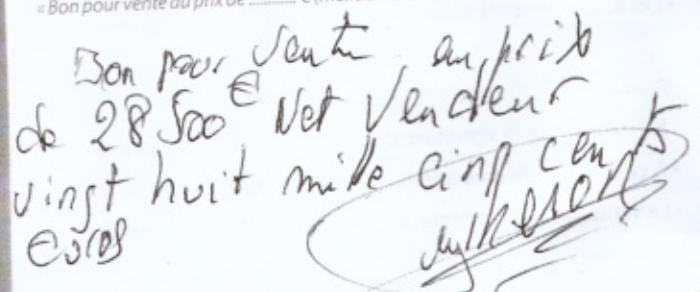 « Bon pour vente au prix de ............ €
Bon pour Vente au prix
de 28 500 € Net Vendeur
vingt huit mille cinq cents
Euros